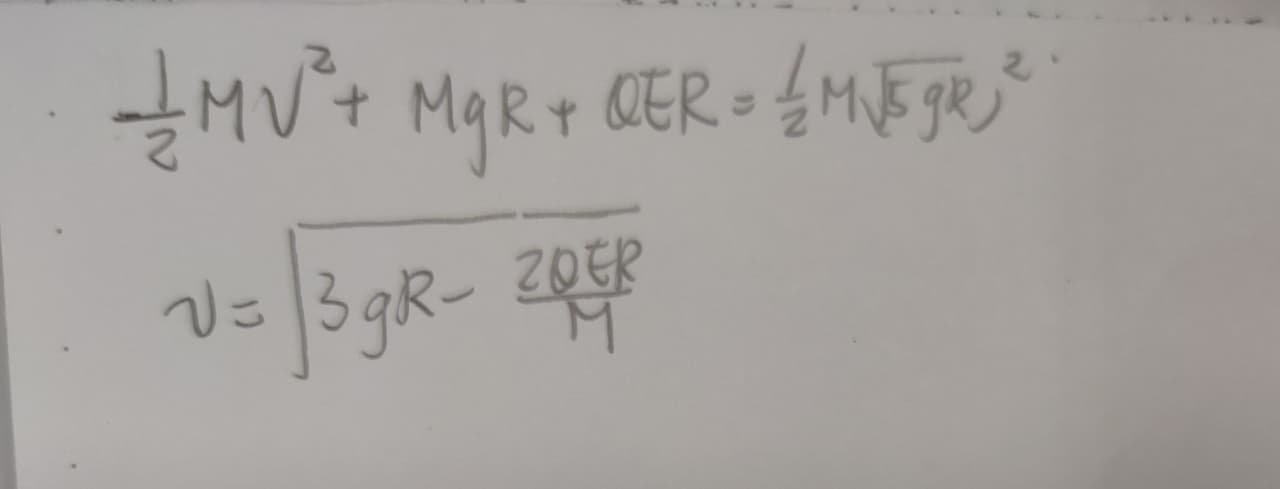 ½MV² + MgR + QER = ½M√5gR)²
v = √3gR - 2QER/M